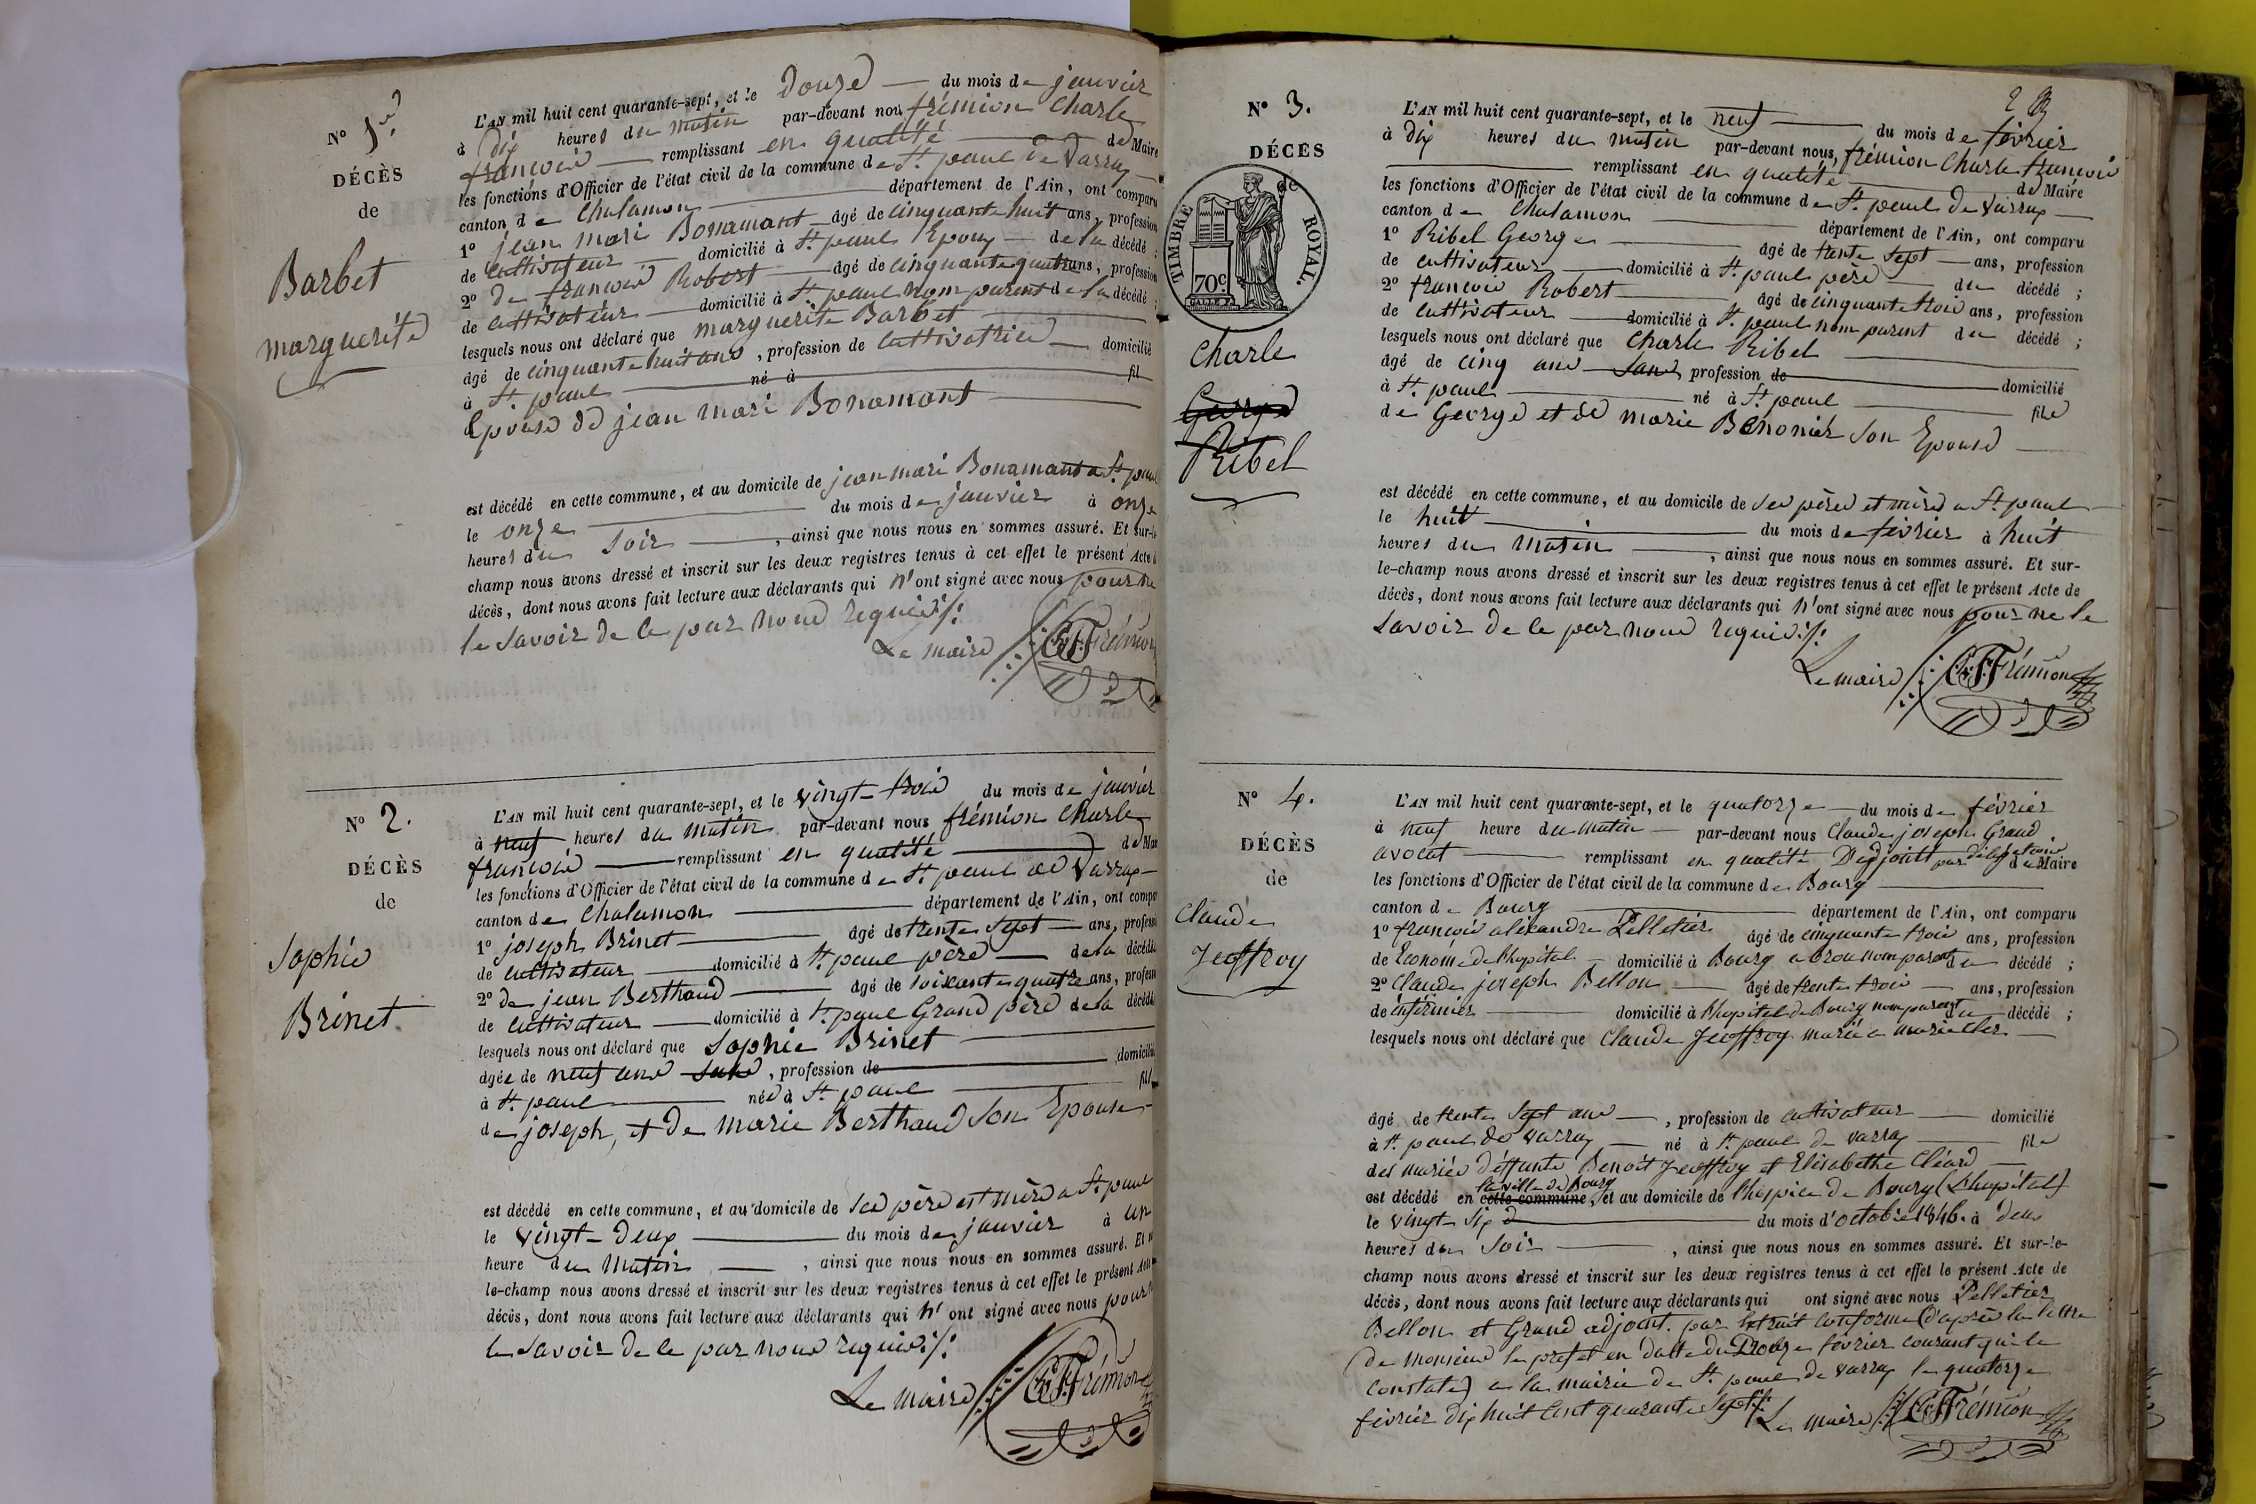 N° 1er
DÉCÈS
de
Barbet
marguerite
L'AN mil huit cent quarante-sept, et le Douze du mois de janvier
à Dix heures du matin par-devant nous frémion Charle
françois remplissant en qualité de Maire
les fonctions d'Officier de l'état civil de la commune de St paul de Varray
canton de Chalamon département de l'Ain, ont comparu
1° jean mari Bonamant âgé de cinquante huit ans, profession
de Cultivateur domicilié à St paul Epoux de la décédé ;
2° de françois Robert âgé de cinquante quatre ans, profession
de Cultivateur domicilié à St paul nom parent de la décédé ;
lesquels nous ont déclaré que marguerite Barbet
âgé de cinquante huit ans , profession de Cultivatrice domicilié
à St paul né à fil
Epouse de jean mari Bonamant
est décédé en cette commune, et au domicile de jean mari Bonamant a St paul
le onze du mois de janvier à onze
heures du soir , ainsi que nous nous en sommes assuré. Et sur-le
champ nous avons dressé et inscrit sur les deux registres tenus à cet effet le présent Acte d
décès, dont nous avons fait lecture aux déclarants qui n'ont signé avec nous pour ne
le savoir de ce par nous requis ./.
Le maire Ch. F. Frémion
N° 2.
DÉCÈS
de
Sophie
Brinet.
L'AN mil huit cent quarante-sept, et le vingt-trois du mois de janvier
à neuf heures du matin par-devant nous frémion Charle
françois remplissant en qualité de Mai
les fonctions d'Officier de l'état civil de la commune de St paul de Varray
canton de Chalamon département de l'Ain, ont compa
1° joseph Brinet âgé de trente sept ans, professi
de Cultivateur domicilié à St paul père de la décédé
2° de jean Berthaud âgé de soixante quatre ans, profess
de Cultivateur domicilié à St paul Grand père de la décédé
lesquels nous ont déclaré que Sophie Brinet
âgée de neuf ans sans , profession de domicilié
à St paul née à St paul fil
de joseph, et de marie Berthaud son Epouse
est décédé en cette commune, et au domicile de ses père et mère a St paul
le vingt-deux du mois de janvier à un
heure du matin , ainsi que nous nous en sommes assuré. Et s
le-champ nous avons dressé et inscrit sur les deux registres tenus à cet effet le présent Acte
décès, dont nous avons fait lecture aux déclarants qui n'ont signé avec nous pour n
le savoir de ce par nous requis ./.
Le maire Ch. F. Frémion
2
N° 3.
DÉCÈS
de
TIMBRE ROYAL.
70c
Charle
George
Ribel
L'AN mil huit cent quarante-sept, et le neuf du mois de février
à dix heures du matin par-devant nous, frémion Charle françois
remplissant en qualité de Maire
les fonctions d'Officier de l'état civil de la commune de St paul de Varray
canton de Chalamon département de l'Ain, ont comparu
1° Ribel George âgé de trente sept ans, profession
de cultivateur domicilié à St paul père du décédé ;
2° françois Robert âgé de cinquante trois ans, profession
de Cultivateur domicilié à St paul nom parent du décédé ;
lesquels nous ont déclaré que Charle Ribel
âgé de cinq ans sans profession de domicilié
à St paul né à St paul fils
de George et de marie Benonier son Epouse
est décédé en cette commune, et au domicile de ses père et mère a St paul
le huit du mois de février à huit
heures du matin , ainsi que nous nous en sommes assuré. Et sur-
le-champ nous avons dressé et inscrit sur les deux registres tenus à cet effet le présent Acte de
décès, dont nous avons fait lecture aux déclarants qui n'ont signé avec nous pour ne le
savoir de ce par nous requis ./.
Le maire Ch. F. Frémion
N° 4.
DÉCÈS
de
Claude
Jeoffroy
L'AN mil huit cent quarante-sept, et le quatorze du mois de février
à neuf heure du matin par-devant nous Claude joseph Grand
avocat remplissant en qualité D'adjoint par délégation de Maire
les fonctions d'Officier de l'état civil de la commune de Bourg
canton de Bourg département de l'Ain, ont comparu
1° françois alexandre Pelletier âgé de cinquante trois ans, profession
de Econome de l'hopital domicilié à Bourg nom parent du décédé ;
2° Claude joseph Bellon âgé de trente trois ans, profession
de infirmier domicilié à l'hopital de Bourg nom parent du décédé ;
lesquels nous ont déclaré que Claude Jeoffroy marié a marie
âgé de trente sept ans , profession de cultivateur domicilié
à St paul de Varray né à St paul de Varray fils
des mariés deffunts Benoit Jeoffroy et Elisabethe Cléard
est décédé en cette commune la ville de Bourg, et au domicile de l'hospice de Bourg (l'hopital)
le vingt six du mois d'octobre 1846. à deux
heures du soir , ainsi que nous nous en sommes assuré. Et sur-le-
champ nous avons dressé et inscrit sur les deux registres tenus à cet effet le présent Acte de
décès, dont nous avons fait lecture aux déclarants qui ont signé avec nous Pelletier
Bellon et Grand adjoint. par extrait conforme (d'après la lettre
de monsieur le prefet en datte du Douze février courant qui le
constate) a la mairie de St paul de varray le quatorze
février dix huit cent quarante sept ./. Le maire Ch. F. Frémion